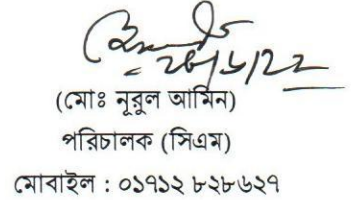 ২৮/৬/২২
(মোঃ নূরুল আমিন)
পরিচালক (সিএম)
মোবাইল : ০১৭১২ ৮২৮৬২৭